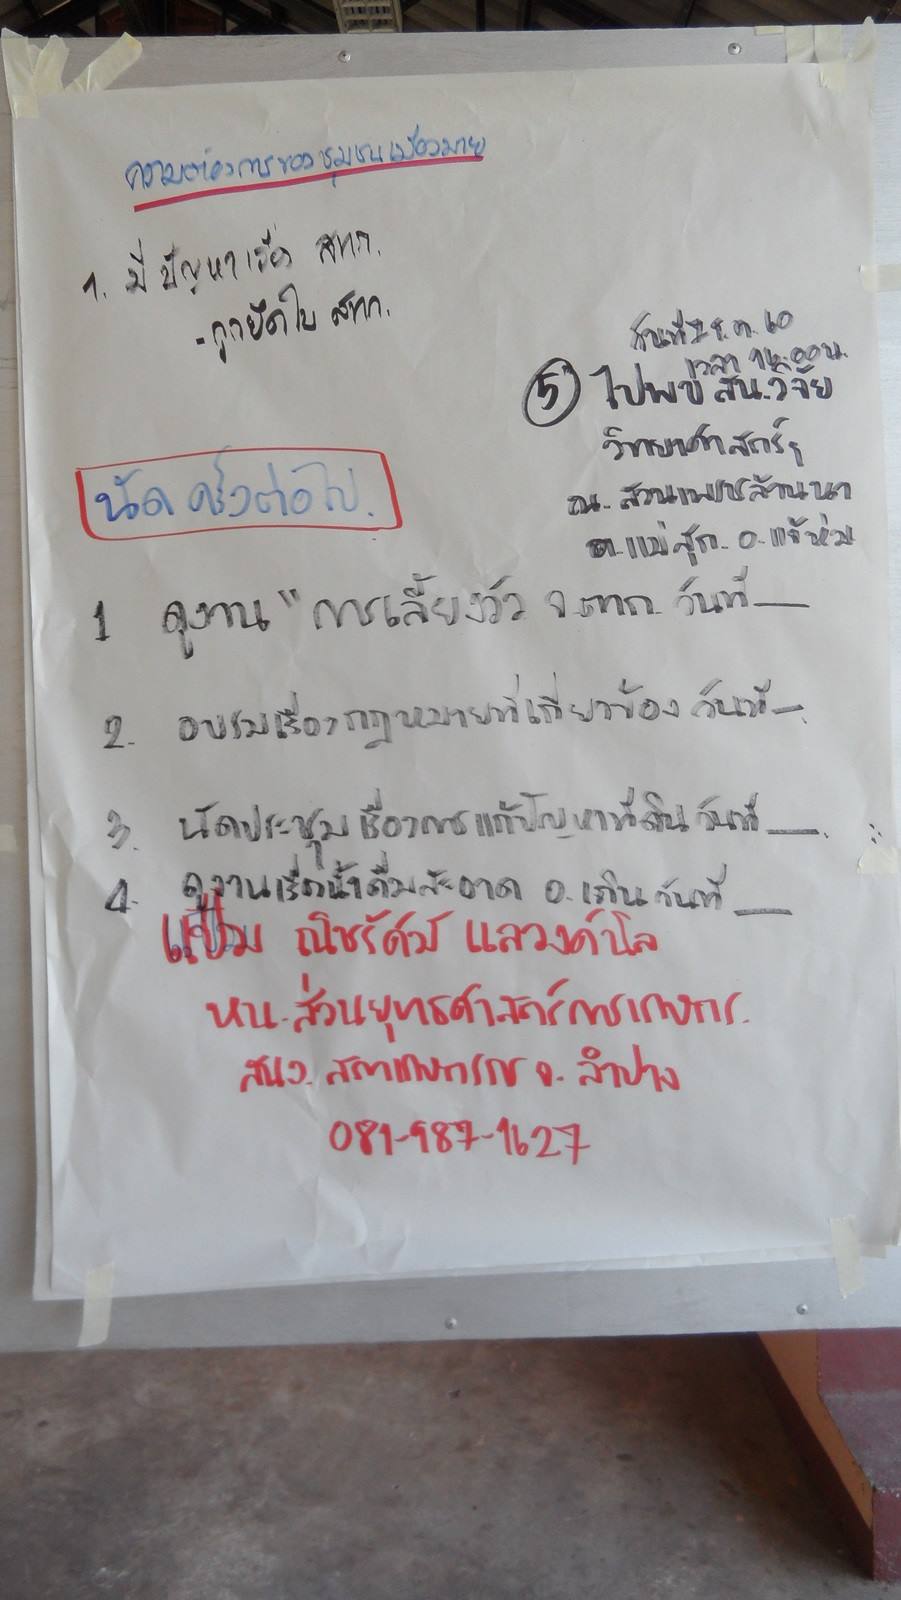 ความต้องการของชุมชนเมืองมาย
1. มีปัญหาเรื่อง สทก.
- ถูกยึดใบ สทก.
เวลา 14.00 น.
5 ไปพบ สน.วิจัย
วิทยาศาสตร์ฯ
ณ. สวนเพชรล้านนา
ต.แม่สุก อ.แจ้ห่ม
นัดครั้งต่อไป.
1 ดูงาน "การเลี้ยงวัว จ.ตาก วันที่
2. อบรมเรื่องกฎหมายที่เกี่ยวข้อง วันที่
3. นัดประชุมเรื่องการแก้ปัญหาที่ดิน วันที่
4. ดูงานเรื่องน้ำดื่มสะอาด อ.เถิน วันที่
ณิชรัศม์ แลวงค์นิล
หน.ส่วนยุทธศาสตร์การเกษตร.
สนง. สภาเกษตรกร จ. ลำปาง
081-987-1627